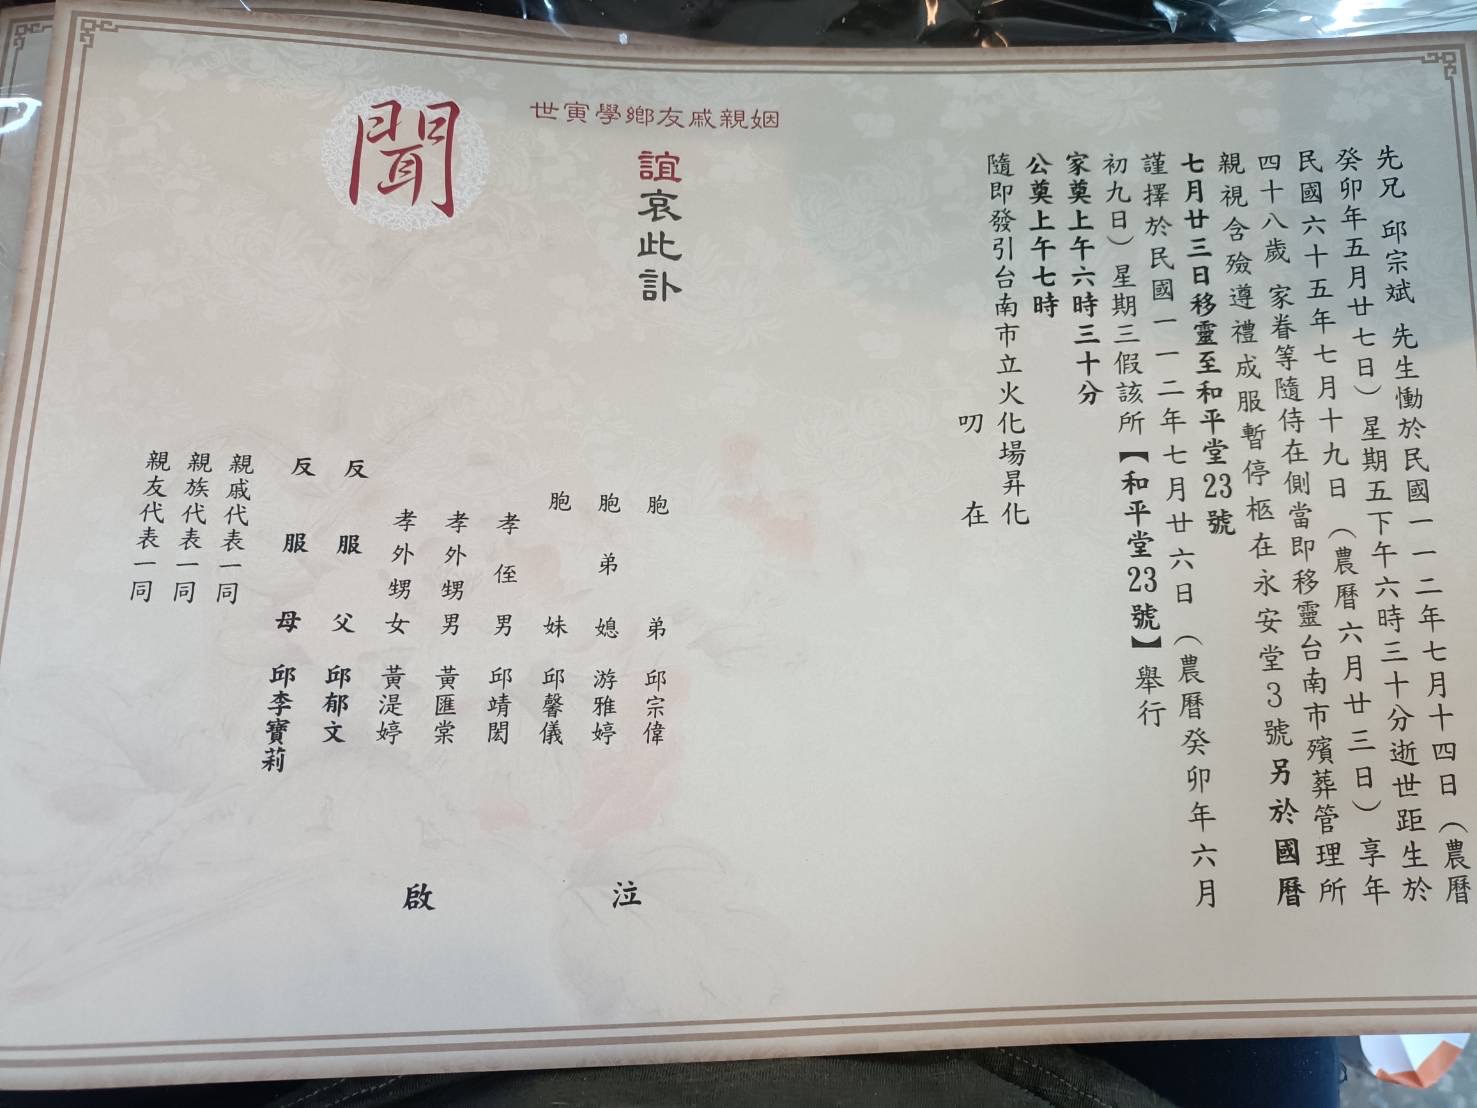 先兄 邱宗斌 先生慟於民國一一二年七月十四日（農曆
癸卯年五月廿七日）星期五下午六時三十分逝世距生於
民國六十五年七月十九日（農曆六月廿三日）享年
四十八歲 家眷等隨侍在側當即移靈台南市殯葬管理所
親視含殮遵禮成服暫停柩在永安堂3號另於國曆
七月廿三日移靈至和平堂23號
謹擇於民國一一二年七月廿六日（農曆癸卯年六月
初九日）星期三假該所【和平堂23號】舉行
家奠上午六時三十分
公奠上午七時
隨即發引台南市立火化場昇化
叨 在
姻親戚友鄉學寅世
誼哀此訃
聞
胞弟 邱宗偉
胞弟媳 游雅婷
胞妹 邱馨儀
孝侄男 邱靖閎
孝外甥男 黃匯棠
孝外甥女 黃湜婷
反服父 邱郁文
反服母 邱李寶莉
親戚代表一同
親族代表一同
親友代表一同
泣
啟